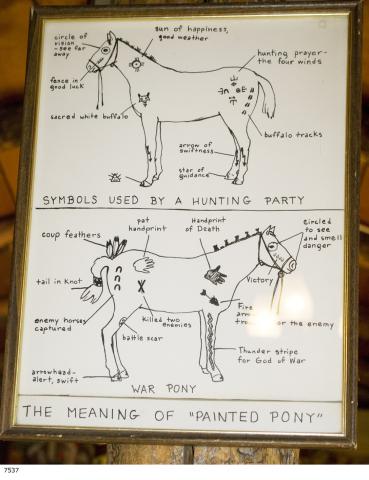 sun of happiness,
good weather
circle of
vision
- see far
away
hunting prayer-
the four winds
fence in
good luck
sacred white buffalo
buffalo tracks
arrow of
swiftness
star of
guidance
SYMBOLS USED BY A HUNTING PARTY
pat
handprint
Handprint
of Death
circled
to see
and smell
danger
coup feathers
tail in Knot
Victory
enemy horses
captured
killed two
enemies
Fire
or the enemy
battle scar
Thunder stripe
for God of War
arrowhead-
alert, swift
WAR PONY
THE MEANING OF "PAINTED PONY"
7537